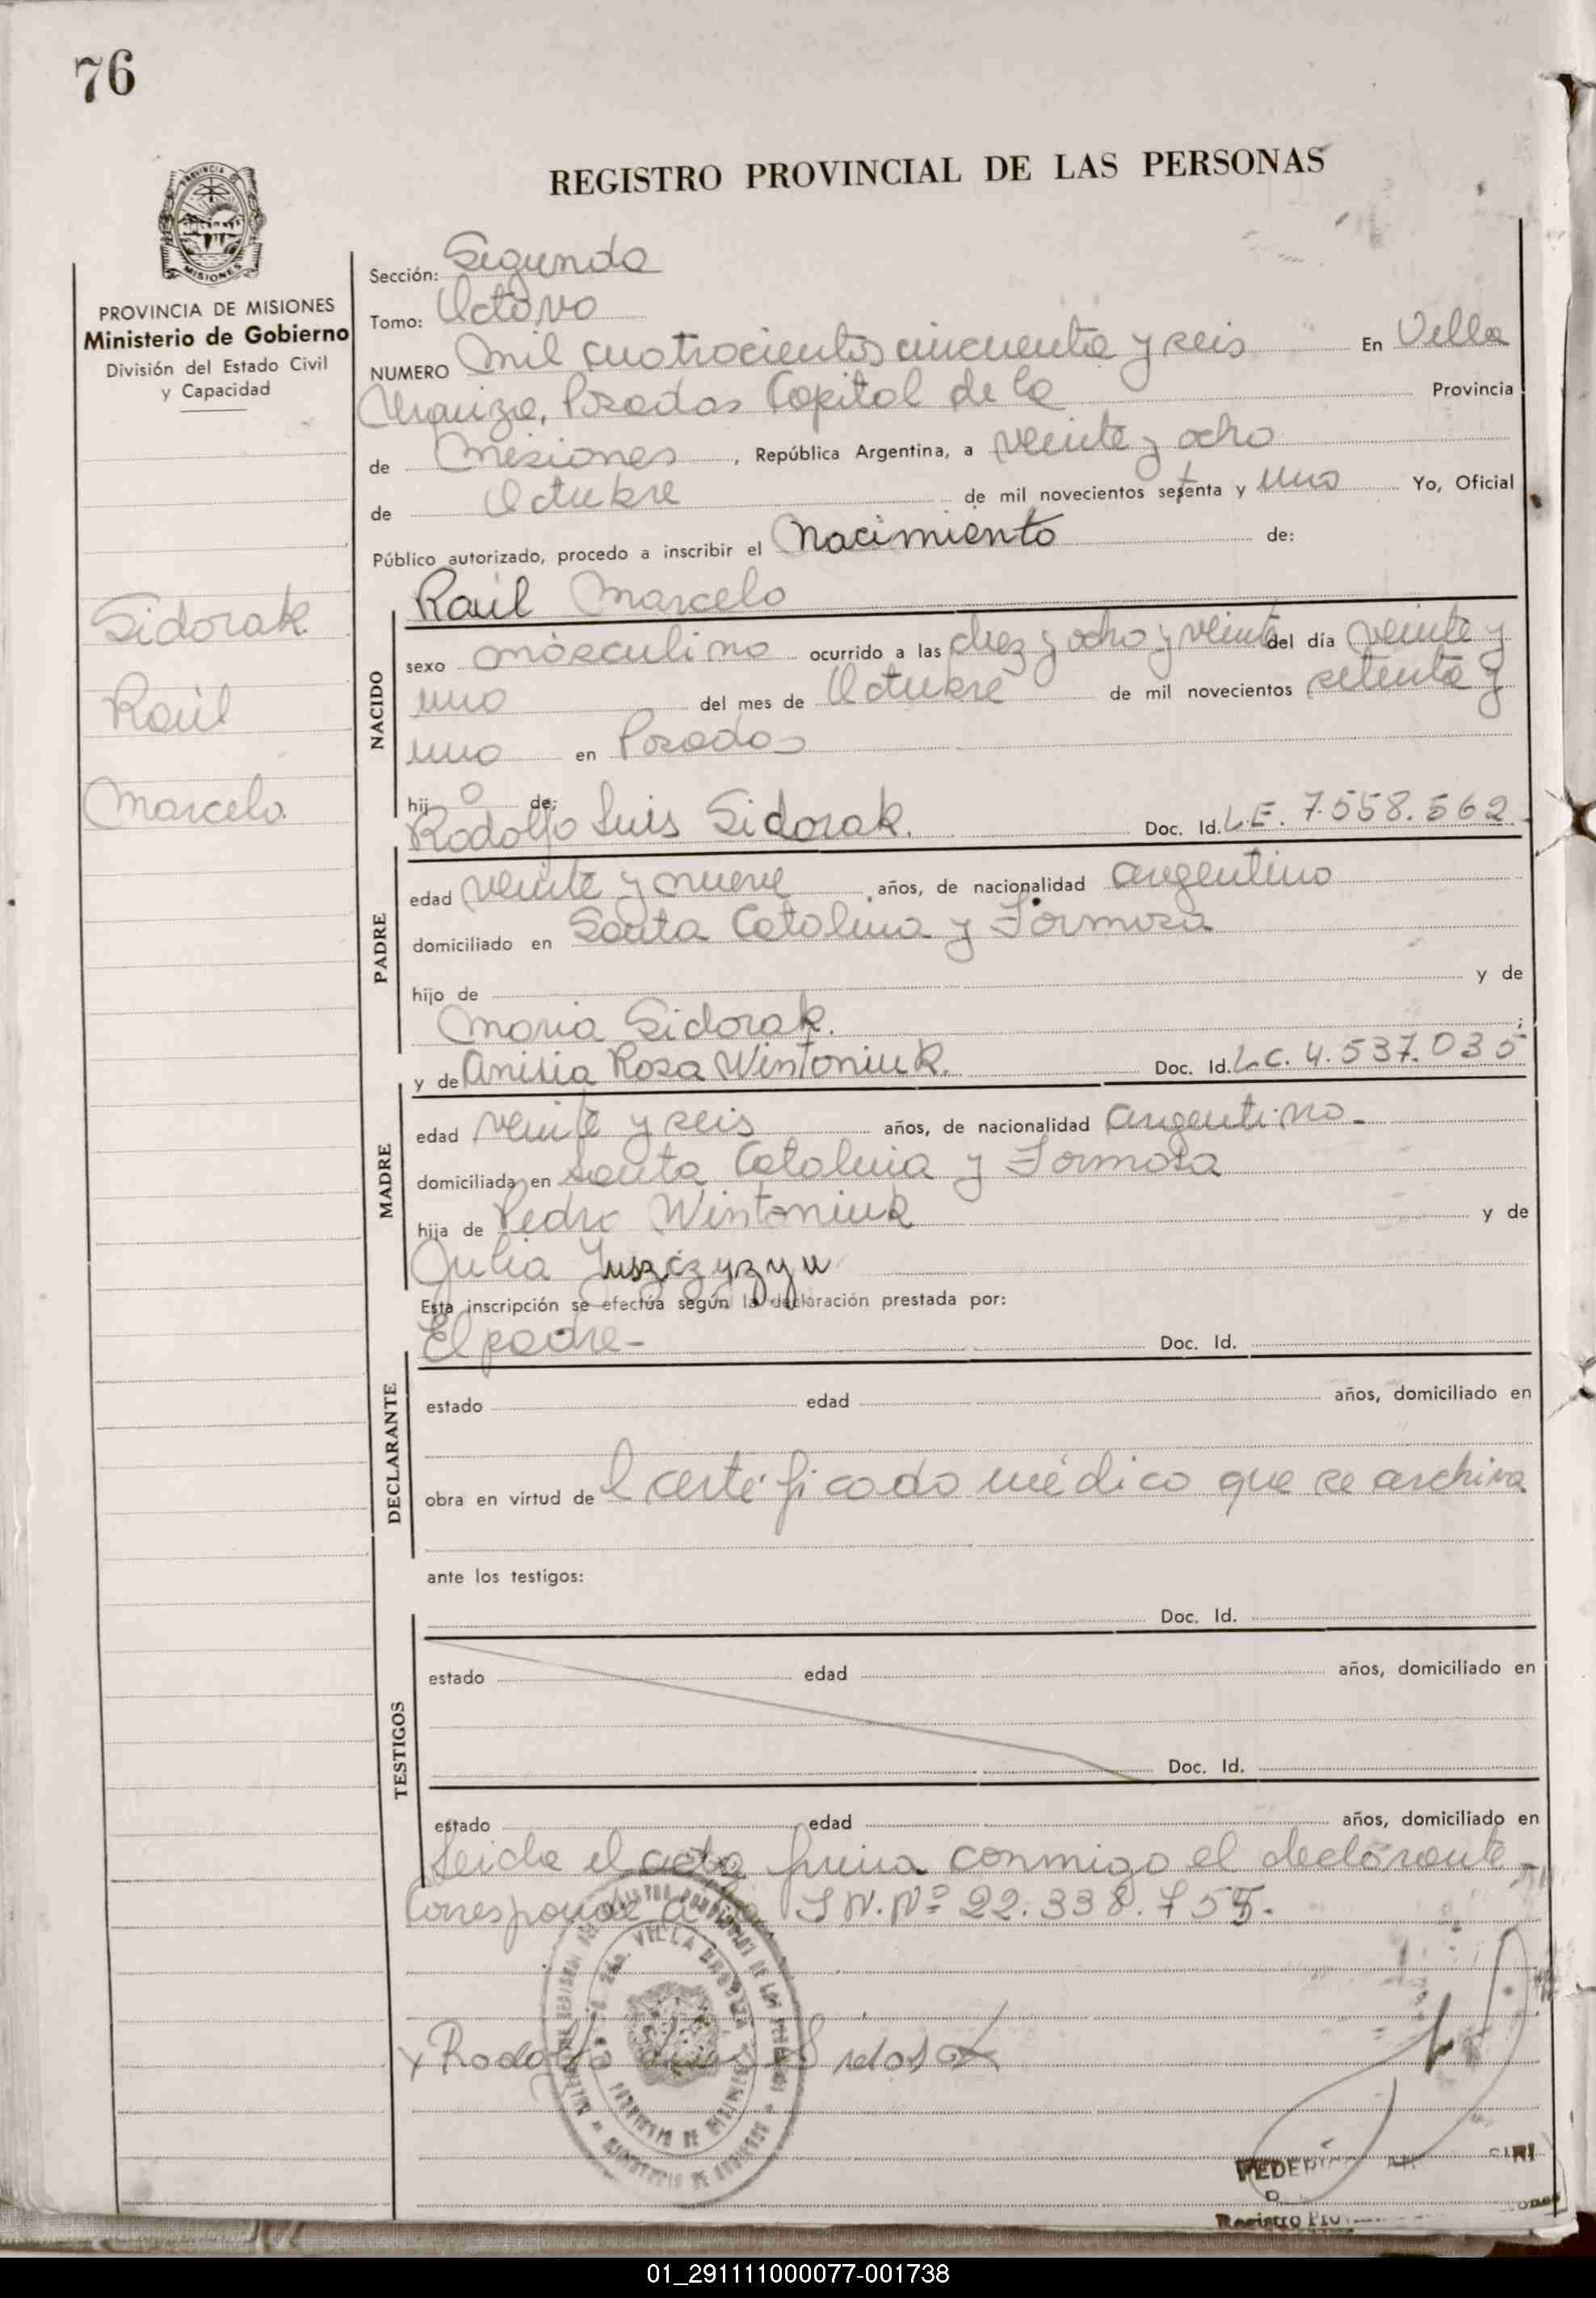 76
REGISTRO PROVINCIAL DE LAS PERSONAS
MISIONES
PROVINCIA DE MISIONES
Ministerio de Gobierno
División del Estado Civil
y Capacidad
Sidorak
Raúl
Marcelo
Sección: Segunda
Tomo: Octavo
NUMERO Mil cuatrocientos cincuenta y seis En Villa
Urquiza, Posadas Capital de la Provincia
de Misiones, República Argentina, a veinte y ocho
de Octubre de mil novecientos setenta y uno Yo, Oficial
Público autorizado, procedo a inscribir el Nacimiento de:
Raúl Marcelo
NACIDO
sexo másculino ocurrido a las diez y ocho y veinte del día veinte y
uno del mes de Octubre de mil novecientos setenta y
uno en Posadas
hij o de:
Rodolfo Luis Sidorak. Doc. Id. L.E. 7.558.562
PADRE
edad veinte y nueve años, de nacionalidad argentino
domiciliado en Santa Catalina y Formosa
hijo de y de
Maria Sidorak. ;
y de Anisia Rosa Wintoniuk. Doc. Id. L.C. 4.537.035
MADRE
edad veinte y seis años, de nacionalidad argentina
domiciliada en Santa Catalina y Formosa
hija de Pedro Wintoniuk y de
Julia Juszczyzyn
Esta inscripción se efectúa según la declaración prestada por:
El padre- Doc. Id.
DECLARANTE
estado edad años, domiciliado en
obra en virtud de l certificado médico que se archiva
ante los testigos:
Doc. Id.
TESTIGOS
estado edad años, domiciliado en
Doc. Id.
estado edad años, domiciliado en
Leida el acta firma conmigo el declarante
Corresponde a la I N. Nº 22.338.755.
VILLA URQUIZA
PROVINCIA DE MISIONES
x Rodolfo Luis Sidorak
Registro
01_291111000077-001738